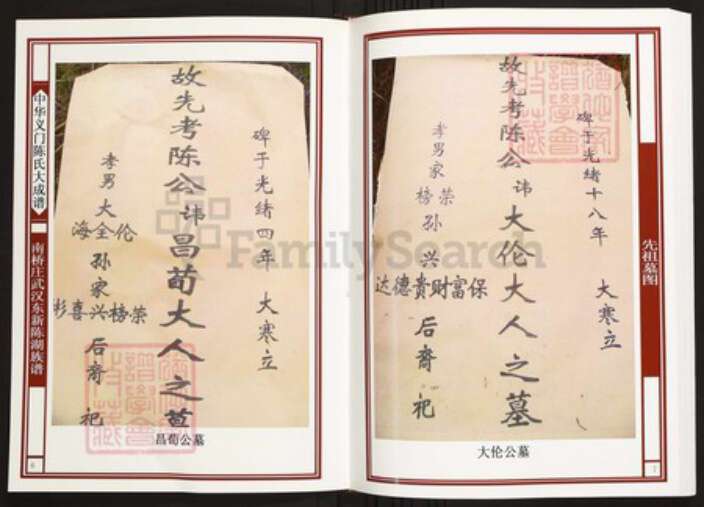 中华义门陈氏大成谱
南桥庄武汉东新陈湖族谱
碑于光绪四年 大寒立
故先考陈公讳昌荀大人之墓
孝男 大
海全伦
孙家
彬喜兴榜荣
后裔 祀
昌荀公墓
6
先祖墓图
碑于光绪十八年 大寒立
故先考陈公讳大伦大人之墓
孝男家
榜荣
孙兴
达德贵财富保
后裔 祀
大伦公墓
7
FamilySearch